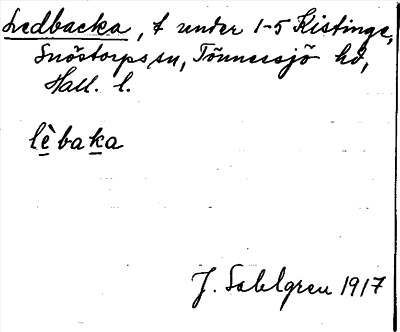 Ledbacka, t under 1-5 Kistinge,
Snöstorps sn, Tönnersjö hd,
Hall. l.
lèbaka
J. Sahlgren 1917